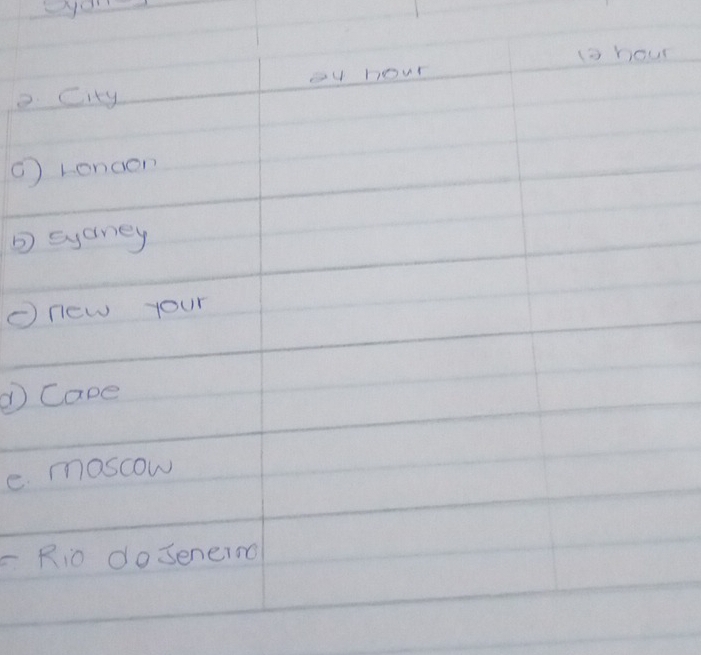 Sydney
2 City 24 hour 12 hour
a) London
b) Sydney
c) new your
d) Cape
e. moscow
- Rio do Jeneiro